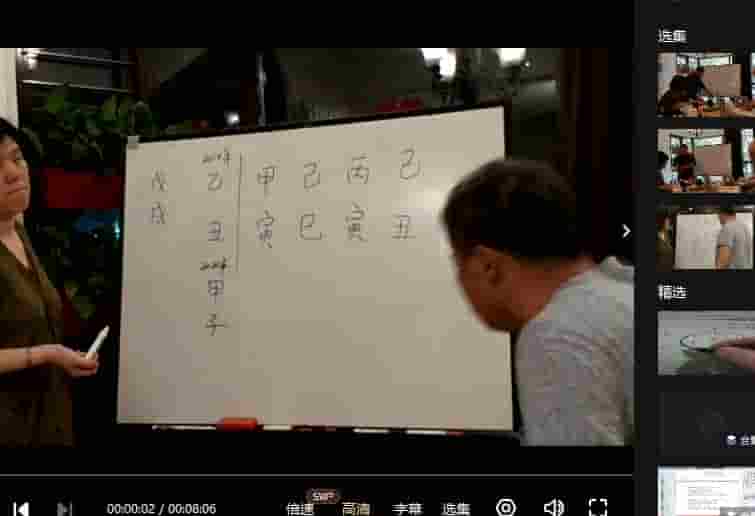 选集
乙 甲 己 丙 己
戊
戌
丑 寅 巳 寅 丑
甲
子
精选
00:00:02 / 00:08:06
倍速
SVIP
高清
字幕
选集